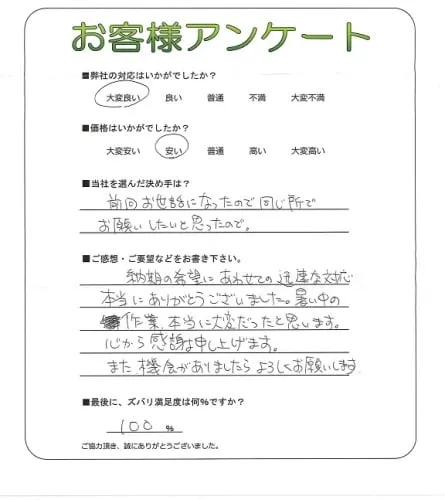 お客様アンケート
■弊社の対応はいかがでしたか？
大変良い 良い 普通 不満 大変不満
■価格はいかがでしたか？
大変安い 安い 普通 高い 大変高い
■当社を選んだ決め手は？
前回お世話になったので同じ所で
お願いしたいと思ったので。
■ご感想・ご要望などをお書き下さい。
納期の希望にあわせての迅速な対応
本当にありがとうございました。暑い中の
作業、本当に大変だったと思います。
心から感謝申し上げます。
また機会がありましたらよろしくお願いします
■最後に、ズバリ満足度は何%ですか？
100 %
ご協力頂き、誠にありがとうございました。